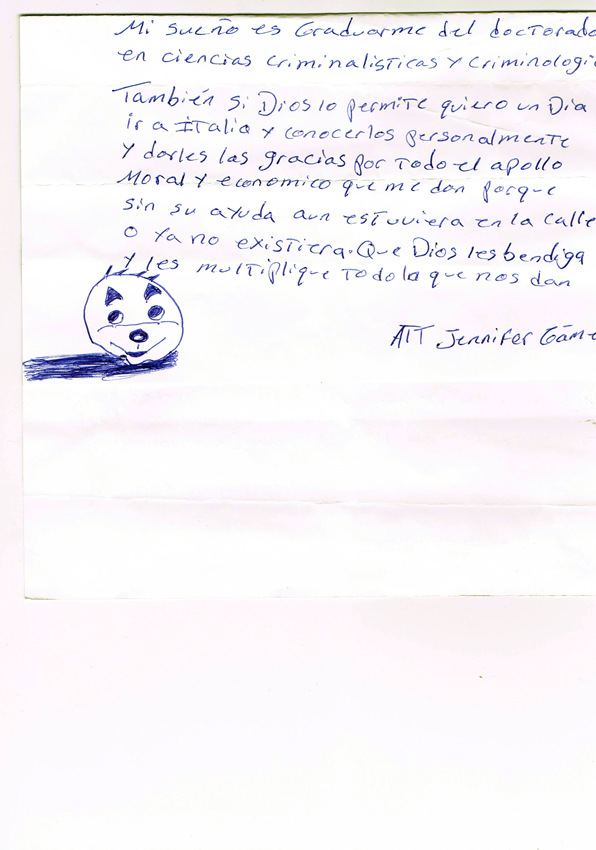 Mi sueño es Graduarme del doctorado
en ciencias criminalisticas y criminologi
También si Dios lo permite quiero un Dia
ir a Italia y conocerlos personalmente
y darles las gracias por todo el apollo
Moral y economico que me dan porque
sin su ayuda aun estuviera en la calle
o ya no existiera. Que Dios les bendiga
y les multiplique todo lo que nos dan
ATT Jennifer Gám